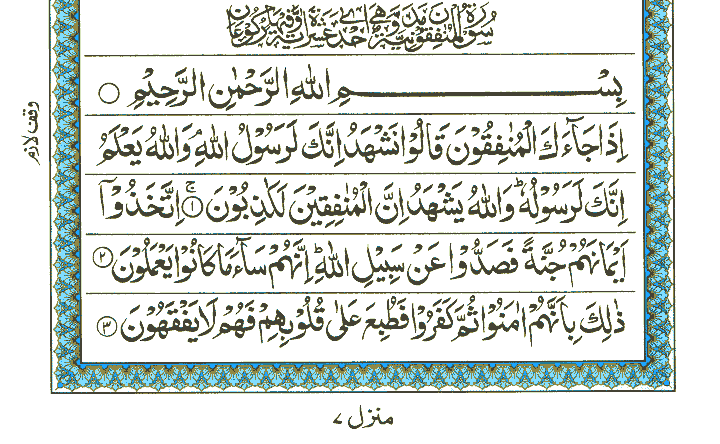 سُوْرَةُ الْمُنٰفِقُوْنَ مَدَنِيَّةٌ وَّهِيَ اِحْدٰى عَشْرَةَ اٰيَةً وَّفِيْهَا رُكُوْعَانِ
بِسْمِ اللّٰهِ الرَّحْمٰنِ الرَّحِيْمِ
اِذَا جَآءَكَ الْمُنٰفِقُوْنَ قَالُوْا نَشْهَدُ اِنَّكَ لَرَسُوْلُ اللّٰهِ ۘ وَاللّٰهُ يَعْلَمُ
وقف لازم
اِنَّكَ لَرَسُوْلُهٗ ؕ وَاللّٰهُ يَشْهَدُ اِنَّ الْمُنٰفِقِيْنَ لَكٰذِبُوْنَ ۚ ﴿۱﴾ اِتَّخَذُوْۤا
اَيْمَانَهُمْ جُنَّةً فَصَدُّوْا عَنْ سَبِيْلِ اللّٰهِ ؕ اِنَّهُمْ سَآءَ مَا كَانُوْا يَعْمَلُوْنَ ﴿۲﴾
ذٰلِكَ بِاَنَّهُمْ اٰمَنُوْا ثُمَّ كَفَرُوْا فَطُبِعَ عَلٰى قُلُوْبِهِمْ فَهُمْ لَا يَفْقَهُوْنَ ﴿۳﴾
منزل ۷